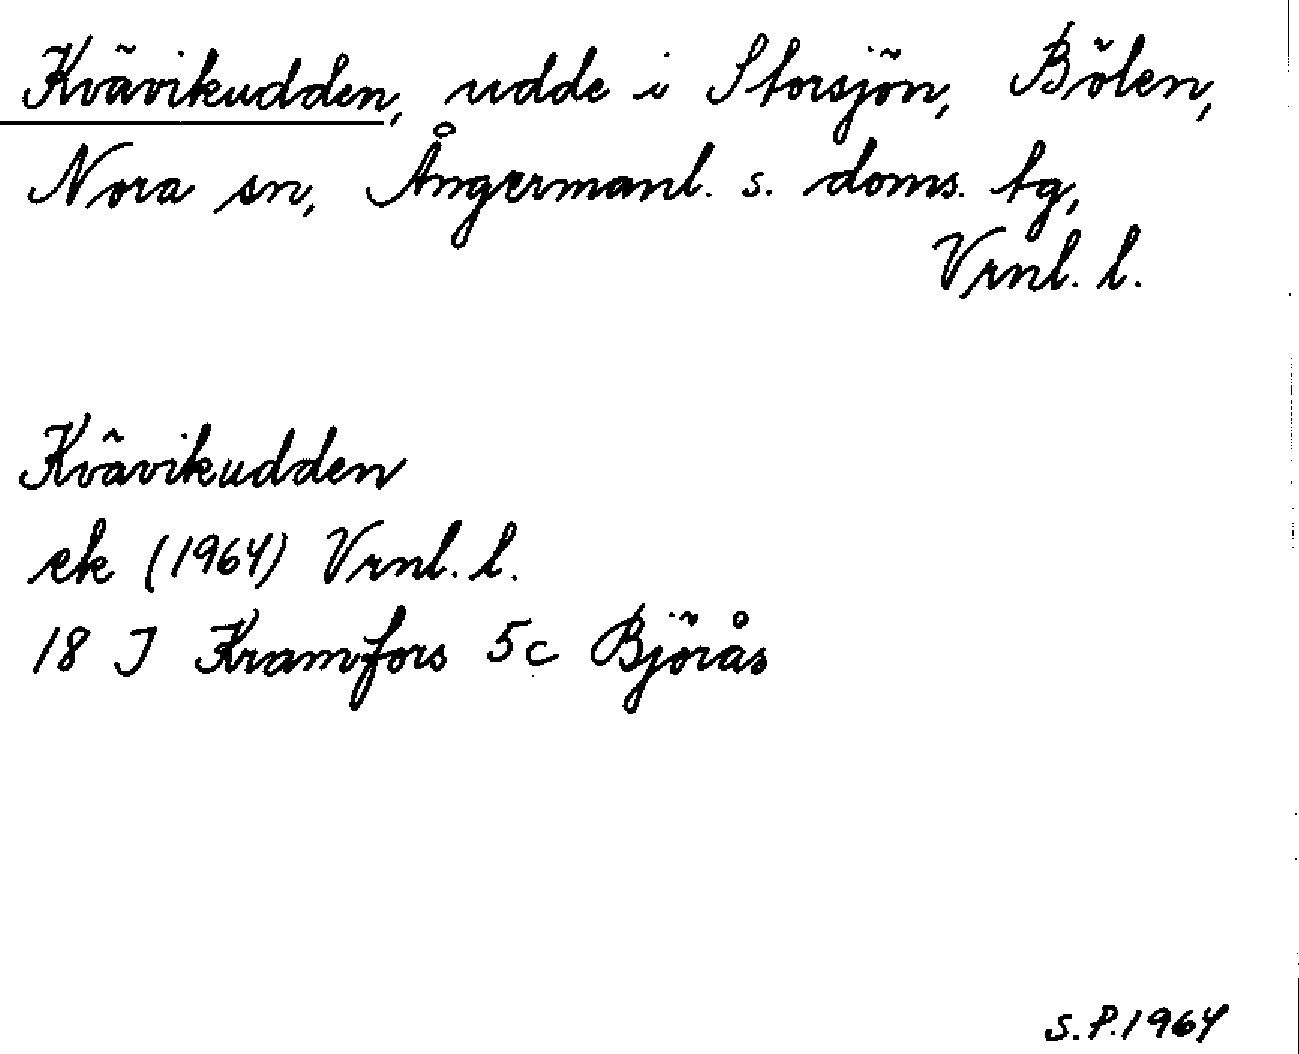 Kvävikudden, udde i Storsjön, Bölen,
Nora sn, Ångermanl. s. doms. tg,
Vrnl. l.
Kvävikudden
ek (1964) Vrnl. l.
18 I Kramfors 5c Björås
S.P.1964